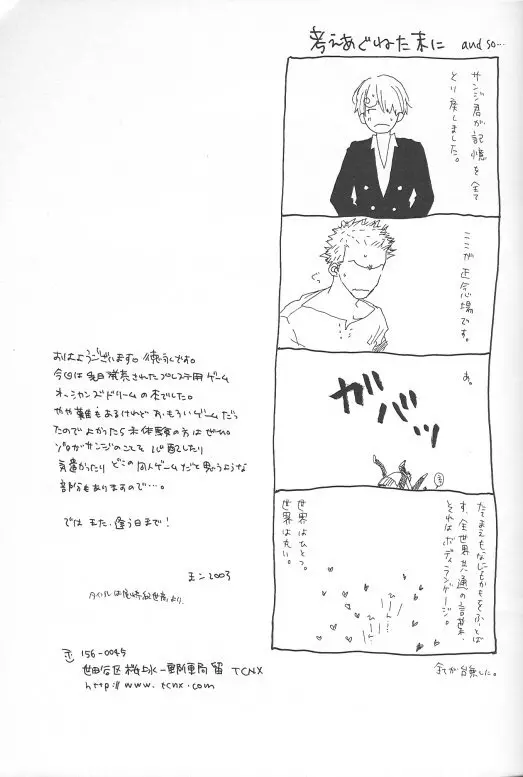 考えあぐねた末に and so…
サンジ君が記憶を全て
とり戻しました。
ここが正念場です。
あ。
ガバッ
たてまえもなにもかもをふっとば
す、全世界共通の言葉、
それはボディランゲージ。
世界はひとつ。
世界は丸い。
全てが台無しだ。
おはようございます。徳川です。
今回は先日発売されたプレステ用ゲーム
オーシャンズドリームの本でした。
やや難もあるけれどおもろいゲームだっ
たのでよかったら未体験の方はぜひ。
ゾロがサンジのことを心配したり
気遣かったりどこの同人ゲームだと思うような
部分もありますので…。
では また、逢う日まで！
王ン2003
タイトルは尾崎紀世彦より。
〒156-0045
世田谷区桜上水一郵便局留 TCNX
http://www.tcnx.com